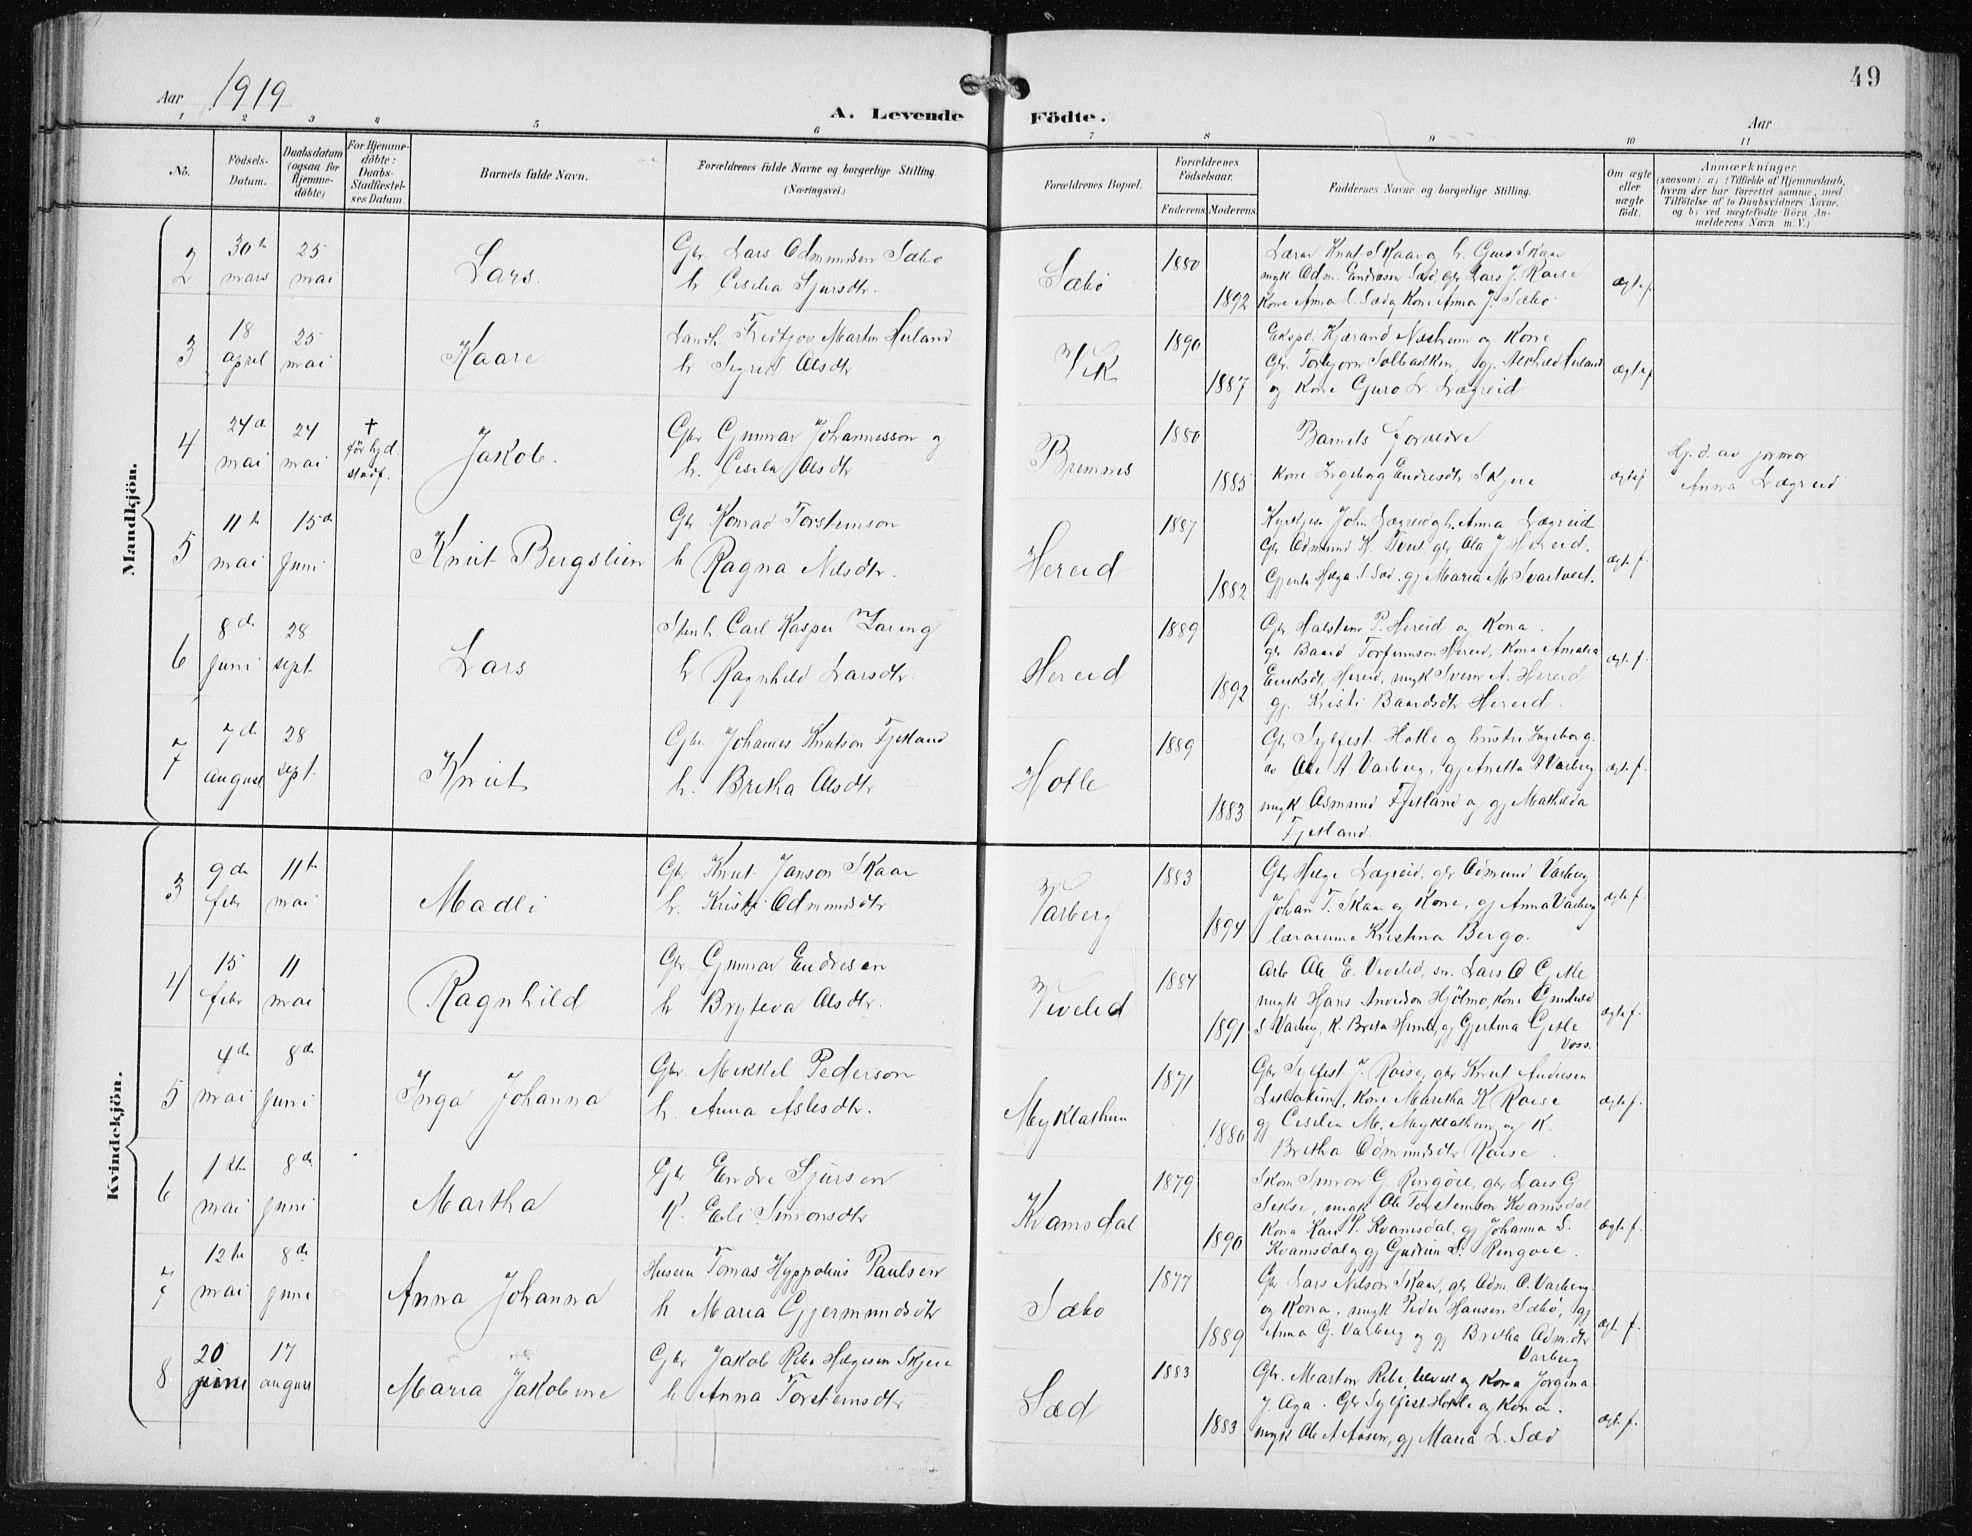 49
Aar 1919
A. Levende Födte.
Aar
1 2 3 4 5 6 7 8 9 10 11
No. Födsels-Datum. Daabsdatum (ogsaa for Hjemme-döbte) For Hjemme-döbte: Daabs-Stadfæstel-ses Datum. Barnets fulde Navn. Forældrenes fulde Navne og borgerlige Stilling (Næringsvei.) Forældrenes Bopæl. Forældrenes Födselsaar. Faderens. Moderens. Faddernes Navne og borgerlige Stilling. Om ægte eller uægte födt. Anmærkninger
(saasom: a) i Tilfælde af Hjemmedaab,
hvem der har forrettet samme, med
Tilföielse af to Daabsvidners Navne,
og b) ved uægtefödte Börn An-
melderens Navn m. V.)
Mandkjön.
2 30te mars 25 mai Lars. Gbr Lars Odmundsen Sæbø
h. Cecilia Sjursdtr. Sæbø 1880 1892 Lærar Knut Skaar og h. Guro Skaar
Lars J. Røise
Kone Anna L. Sæd og Kone Anna J. Sæbø ægtef
3 18 april 25 mai Kaare Landh. Fridtjov Martin Herland
h. Sigrid Olsdtr Vik 1890 1887 Ekspd. Kjærand Næsheim og Kone
og Kone Guro L. Lægreid ægtef
4 24d mai 24 mai † før hjd stadf. Jakob. Gbr Gunnar Johannesson og
h. Cecilia Olsdtr Bremnes 1880 1885 Barnets foreldre
Kone Ingeborg Endresdtr Skjere ægtef Hj.d. av jormor
Anna Lægreid
5 11te mai 15de juni Knut Bergslien Gbr Konrad Torsteinson
h Ragna Nilsdtr. Hereid 1887 1882 John Lægreid og h. Anna Lægreid
Gbr Odmund K. Tveit, gbr Ola J Hereid.
Gjente Helga S Sæd. gj Maria M Svartveit. ægte f.
6 8de juni 28 sept. Lars Carl Kasper Zaring
h Ragnhild Larsdtr. Hereid 1889 1892 Gbr. Halstein P. Hereid og Kona.
gbr Baard Torfinnson Hereid, Kona Amalia
Eriksdt, Hereid, ungk Svein A. Hereid
gj. Kristi Baardsdtr Hereid. ægte f.
7 7de august 28 sept. Knut Gbr. Johannes Knutson Fjetland
h. Bretha Olsdtr Hotle 1889 1883 Gbr Sylfest Hotle og hustru Ingeborg.
av Ole A Varberg, gj Anetta A Varberg
ungk Asmund Fjetland og gj Mathilda
Fjetland. ægte f.
Kvindekjön.
3 9de febr 11te mai Madli Gbr Knut Janson Skaar
h. Kristi Odmundsdtr Varberg 1883 1894 Gbr Helge Lægreid, gbr Odmund Varberg
Johan T. Skaar og Kone, gj Anna Varberg
lærarinne Kristina Bergo. ægte f.
4 15 febr 11 mai Ragnhild Gbr Gunnar Endresen
h Bryteva Olsdtr. Viveled 1884 1891 Arb Ole E. Viveled, sn. Lars O Gjetle
ungk Hans Hjølmo, Kone Gunhild
S Varberg, K. Brita gj Gjertina Gjetle
Voss. ægte f.
5 4de mai 8de juni Inga Johanna Gbr. Mikkel Pederson
h. Anna Aslesdtr. Myklathun 1871 1880 Gbr Sylfest J. Røise, gbr Knut Andersen
Kone Maretha K Røise
gj Cecilia M. Myklathun og K.
Bretha Odmundsdtr Røise. ægte f.
6 1ste mai 8de juni Martha Gbr Endre Sjursen
K. Eli Simonsdtr Kvamsdal 1879 1890 Skom Simon G. Ringøie, gbr Lars G
Sekse, ungk Ole Torsteinson Kvamsdal
Kona Kari P. Kvamsdal, gj Johanna S.
Kvamsdal og gj Gudrun S. Ringøie. ægte f.
7 12te mai 8de juni Anna Johanna Tomas Hyppolius Paulsen
h Maria Gjermundsdtr Sæbo 1877 1889 Gbr Lars Nilson Skaar, gbr Odm O. Varberg
og Kona. ungk Peder Hansen Sæbø, gj
Anna G. Varberg og gj Bretha Odm.dtr
Varberg ægte f.
8 20 juni 17 august Maria Jakobine Gbr Jakob Helgesen Skjere
h Anna Torsteinsdtr Sæd 1883 1883 Gbr. Martin og Kona Jorgina
J. Aga. Gbr Sylfest Hotle og Kona.
ungk Ole A Aasen, gj Maria L. Sæd ægte f.